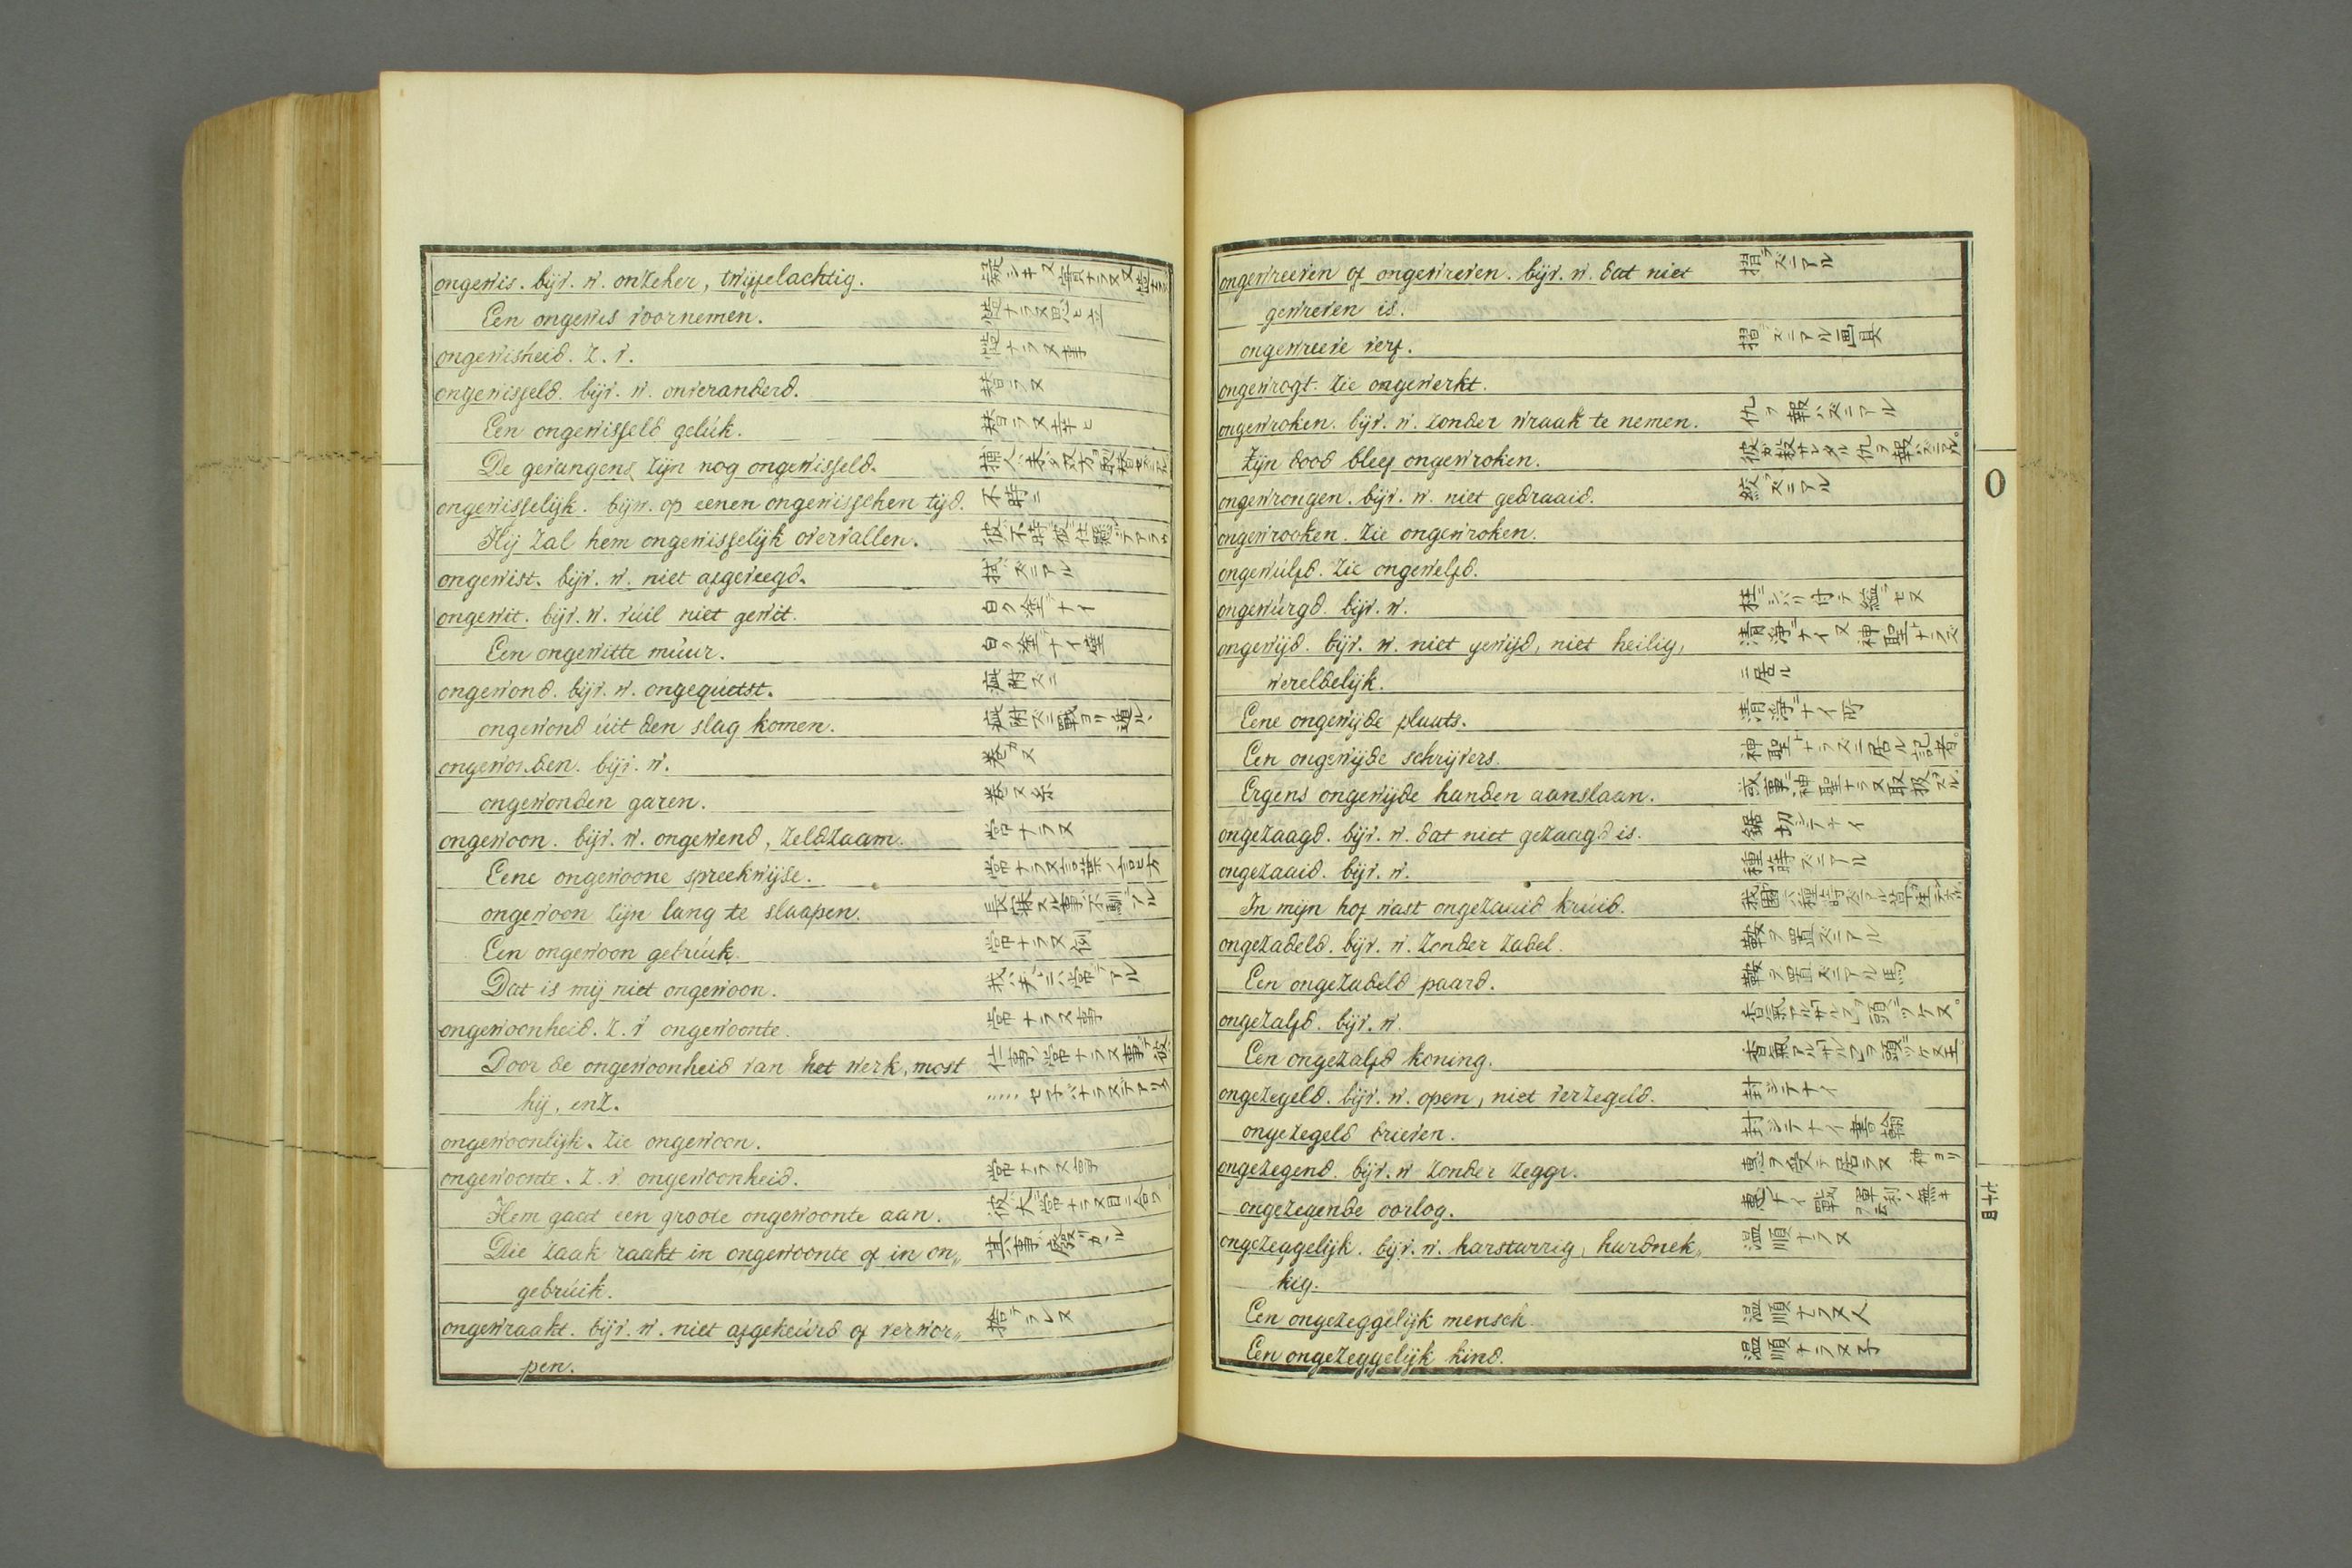 ongewis. bijv. w. onzeker, twijfelachtig.
Een ongewis voornemen. 慥ナラヌ思ヒ立
ongewisheid. z. v. 慥ナラヌ事
ongewisseld. bijv. w. onveranderd. 替ラヌ
Een ongewisseld gelúk. 替ラヌ幸ヒ
De gevangens zijn nog ongewisseld.
ongewisselijk. bijw. op eenen ongewisschen tijd. 不時ニ
Hij zal hem ongewisselijk overvallen.
ongewist. bijv. w. niet afgeveegd. 拭ズニアル
ongewit. bijv. w. vúil niet gewit. 白ク塗ナイ
Een ongewitte múur. 白ク塗ナイ壁
ongewond. bijv. w. ongequetst.
ongewond úit den slag komen.
ongewonden. bijv. w. 巻カヌ
ongewonden garen. 巻ヌ糸
ongewoon. bijv. w. ongewend, zeldzaam. 常ナラヌ
Eene ongewoone spreekwijse. 常ナラヌ言葉ノ言ヒ方
ongewoon zijn lang te slaapen.
Een ongewoon gebrúik. 常ナラヌ例
Dat is mij niet ongewoon.
ongewoonheid. z. v ongewoonte. 常ナラヌ事
Door de ongewoonheid van het werk, most
hij, enz. ..... セ子バナラズアリタ
ongewoonlijk. zie ongewoon.
ongewoonte. z. v. ongewoonheid. 常ナラヌ事
Hem gaat een groote ongewoonte aan.
Die zaak raakt in ongewoonte of in on„
gebrúik.
ongewraakt. bijv. w. niet afgekeúrd of verwor„ 捨テラレヌ
pen.
ongewreeven of ongewreven. bijv. w. dat niet 摺ラズニアル
gewreven is.
ongewreeve verf. 摺ズニアル画具
ongewrogt. zie ongewerkt.
ongewroken. bijv. w. zonder wraak te nemen. 仇ヲ報ハズニアル
Zijn dood bleef ongewroken.
ongewrongen. bijv. w. niet gedraaid. 絞ズニアル
ongewrooken. zie ongewroken.
ongewúlfd. zie ongewelfd.
ongewúrgd. bijv. w.
ongewijd. bijv. w. niet gewijd, niet heilig, 清浄ナイ又神聖ナラズ
wereldelijk. ニ居ル
Eene ongewijde plaats. 清浄ナイ所
Een ongewijde schrijvers. 神聖ナラズニ居ル記者。
Ergens ongewijde handen aanslaan.
ongezaagd. bijv. w. dat niet gezaagd is. 鋸切シテナイ
ongezaaid. bijv. w. 種蒔ズニアル
In mijn hof wast ongezaaid krúid.
ongezadeld. bijv. w. zonder zadel. 鞍ヲ置ズニアル
Een ongezadeld paard. 鞍ヲ置ズニアル馬
ongezalfd. bijv. w.
Een ongezalfd koning.
ongezegeld. bijv. w. open, niet verzegeld. 封シテナイ
ongezegeld brieven. 封シテナイ書翰
ongezegend. bijv. w zonder zegge.
ongezegende oorlog.
ongezeggelijk. bijv. w. harsturrig, hardnek„ 温順ナラヌ
kig.
Een ongezeggelijk mensch. 温順ナラヌ人
Een ongezeggelijk kind. 温順ナラヌ子
O